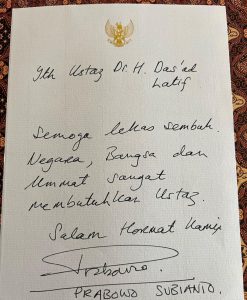 Yth Ustaz Dr. H. Das'ad
Latif
Semoga lekas sembuh.
Negara, Bangsa dan
Ummat sangat
membutuhkan Ustaz.
Salam Hormat Kami,
Prabowo.
PRABOWO SUBIANTO.